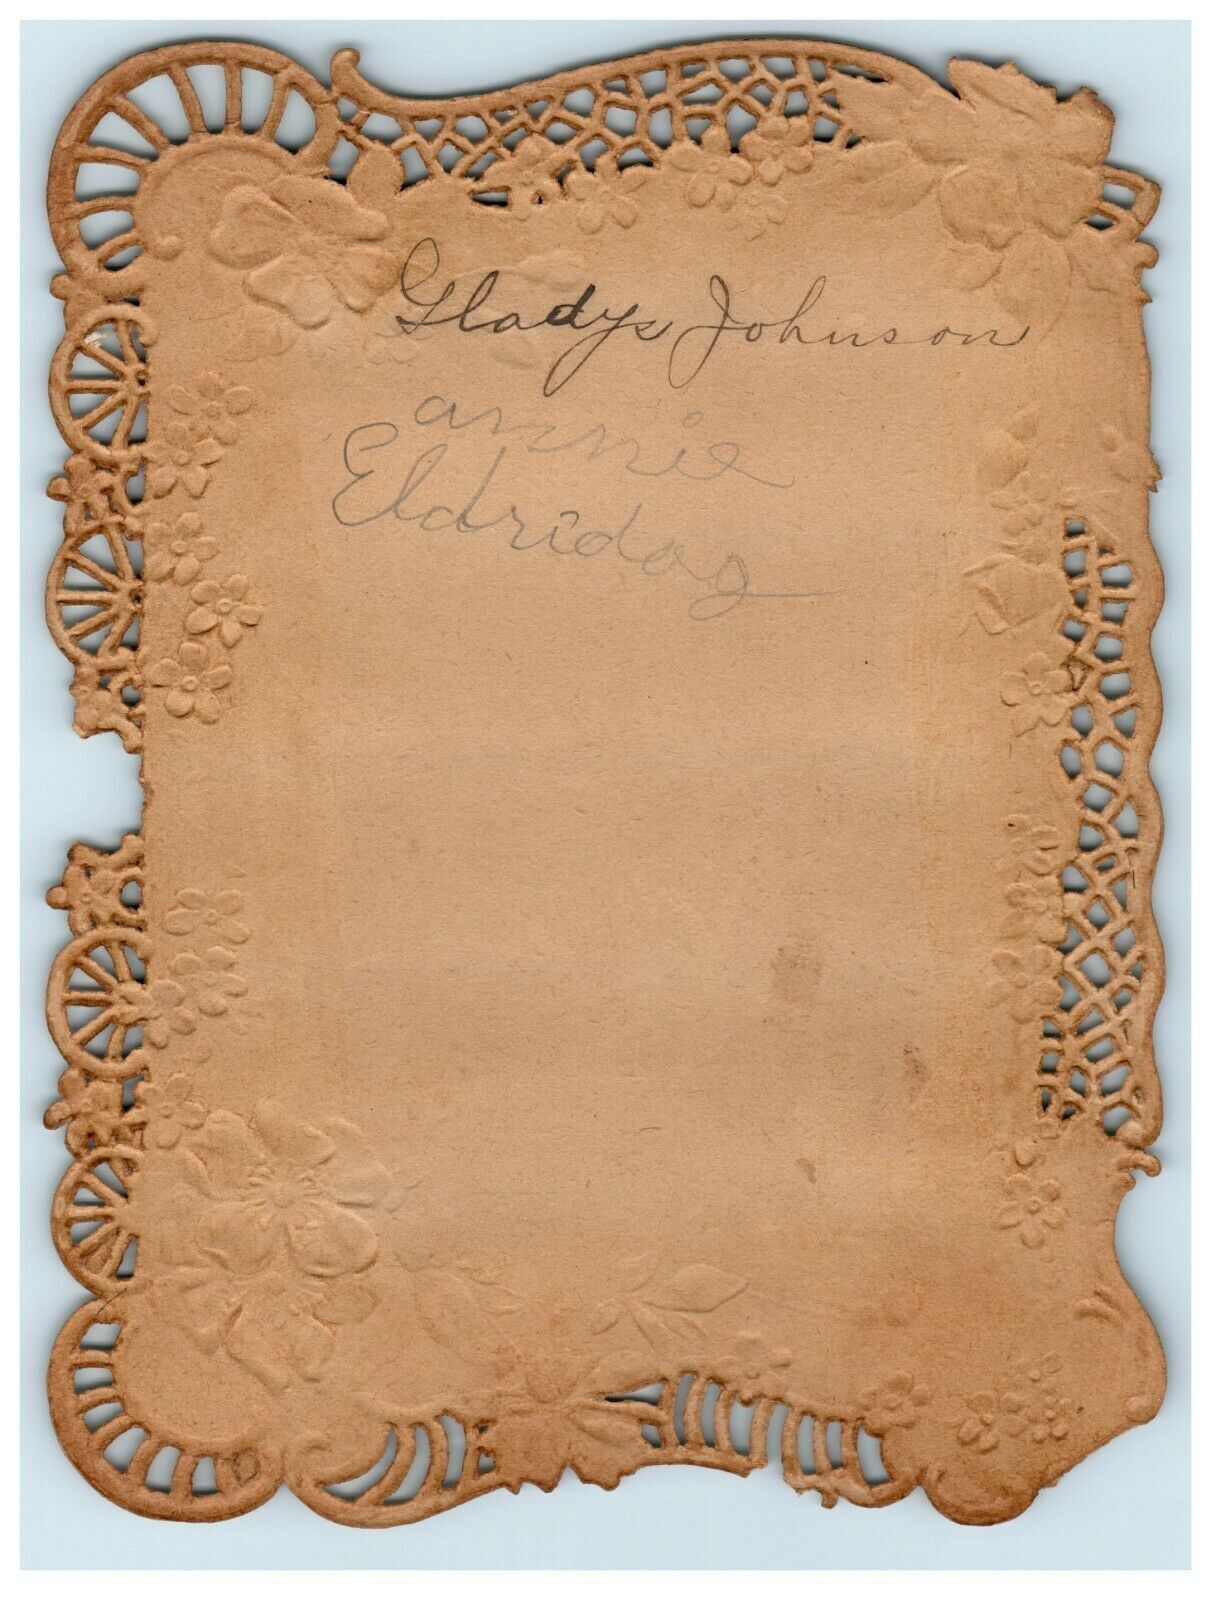 Gladys Johnson
annie
Eldridog